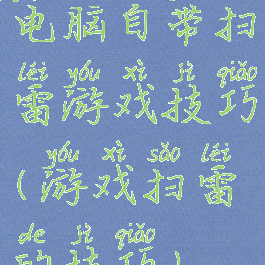 电脑自带扫
léi yóu xì jì qiǎo
雷游戏技巧
yóu xì sǎo léi
(游戏扫雷
de jì qiǎo
的技巧)